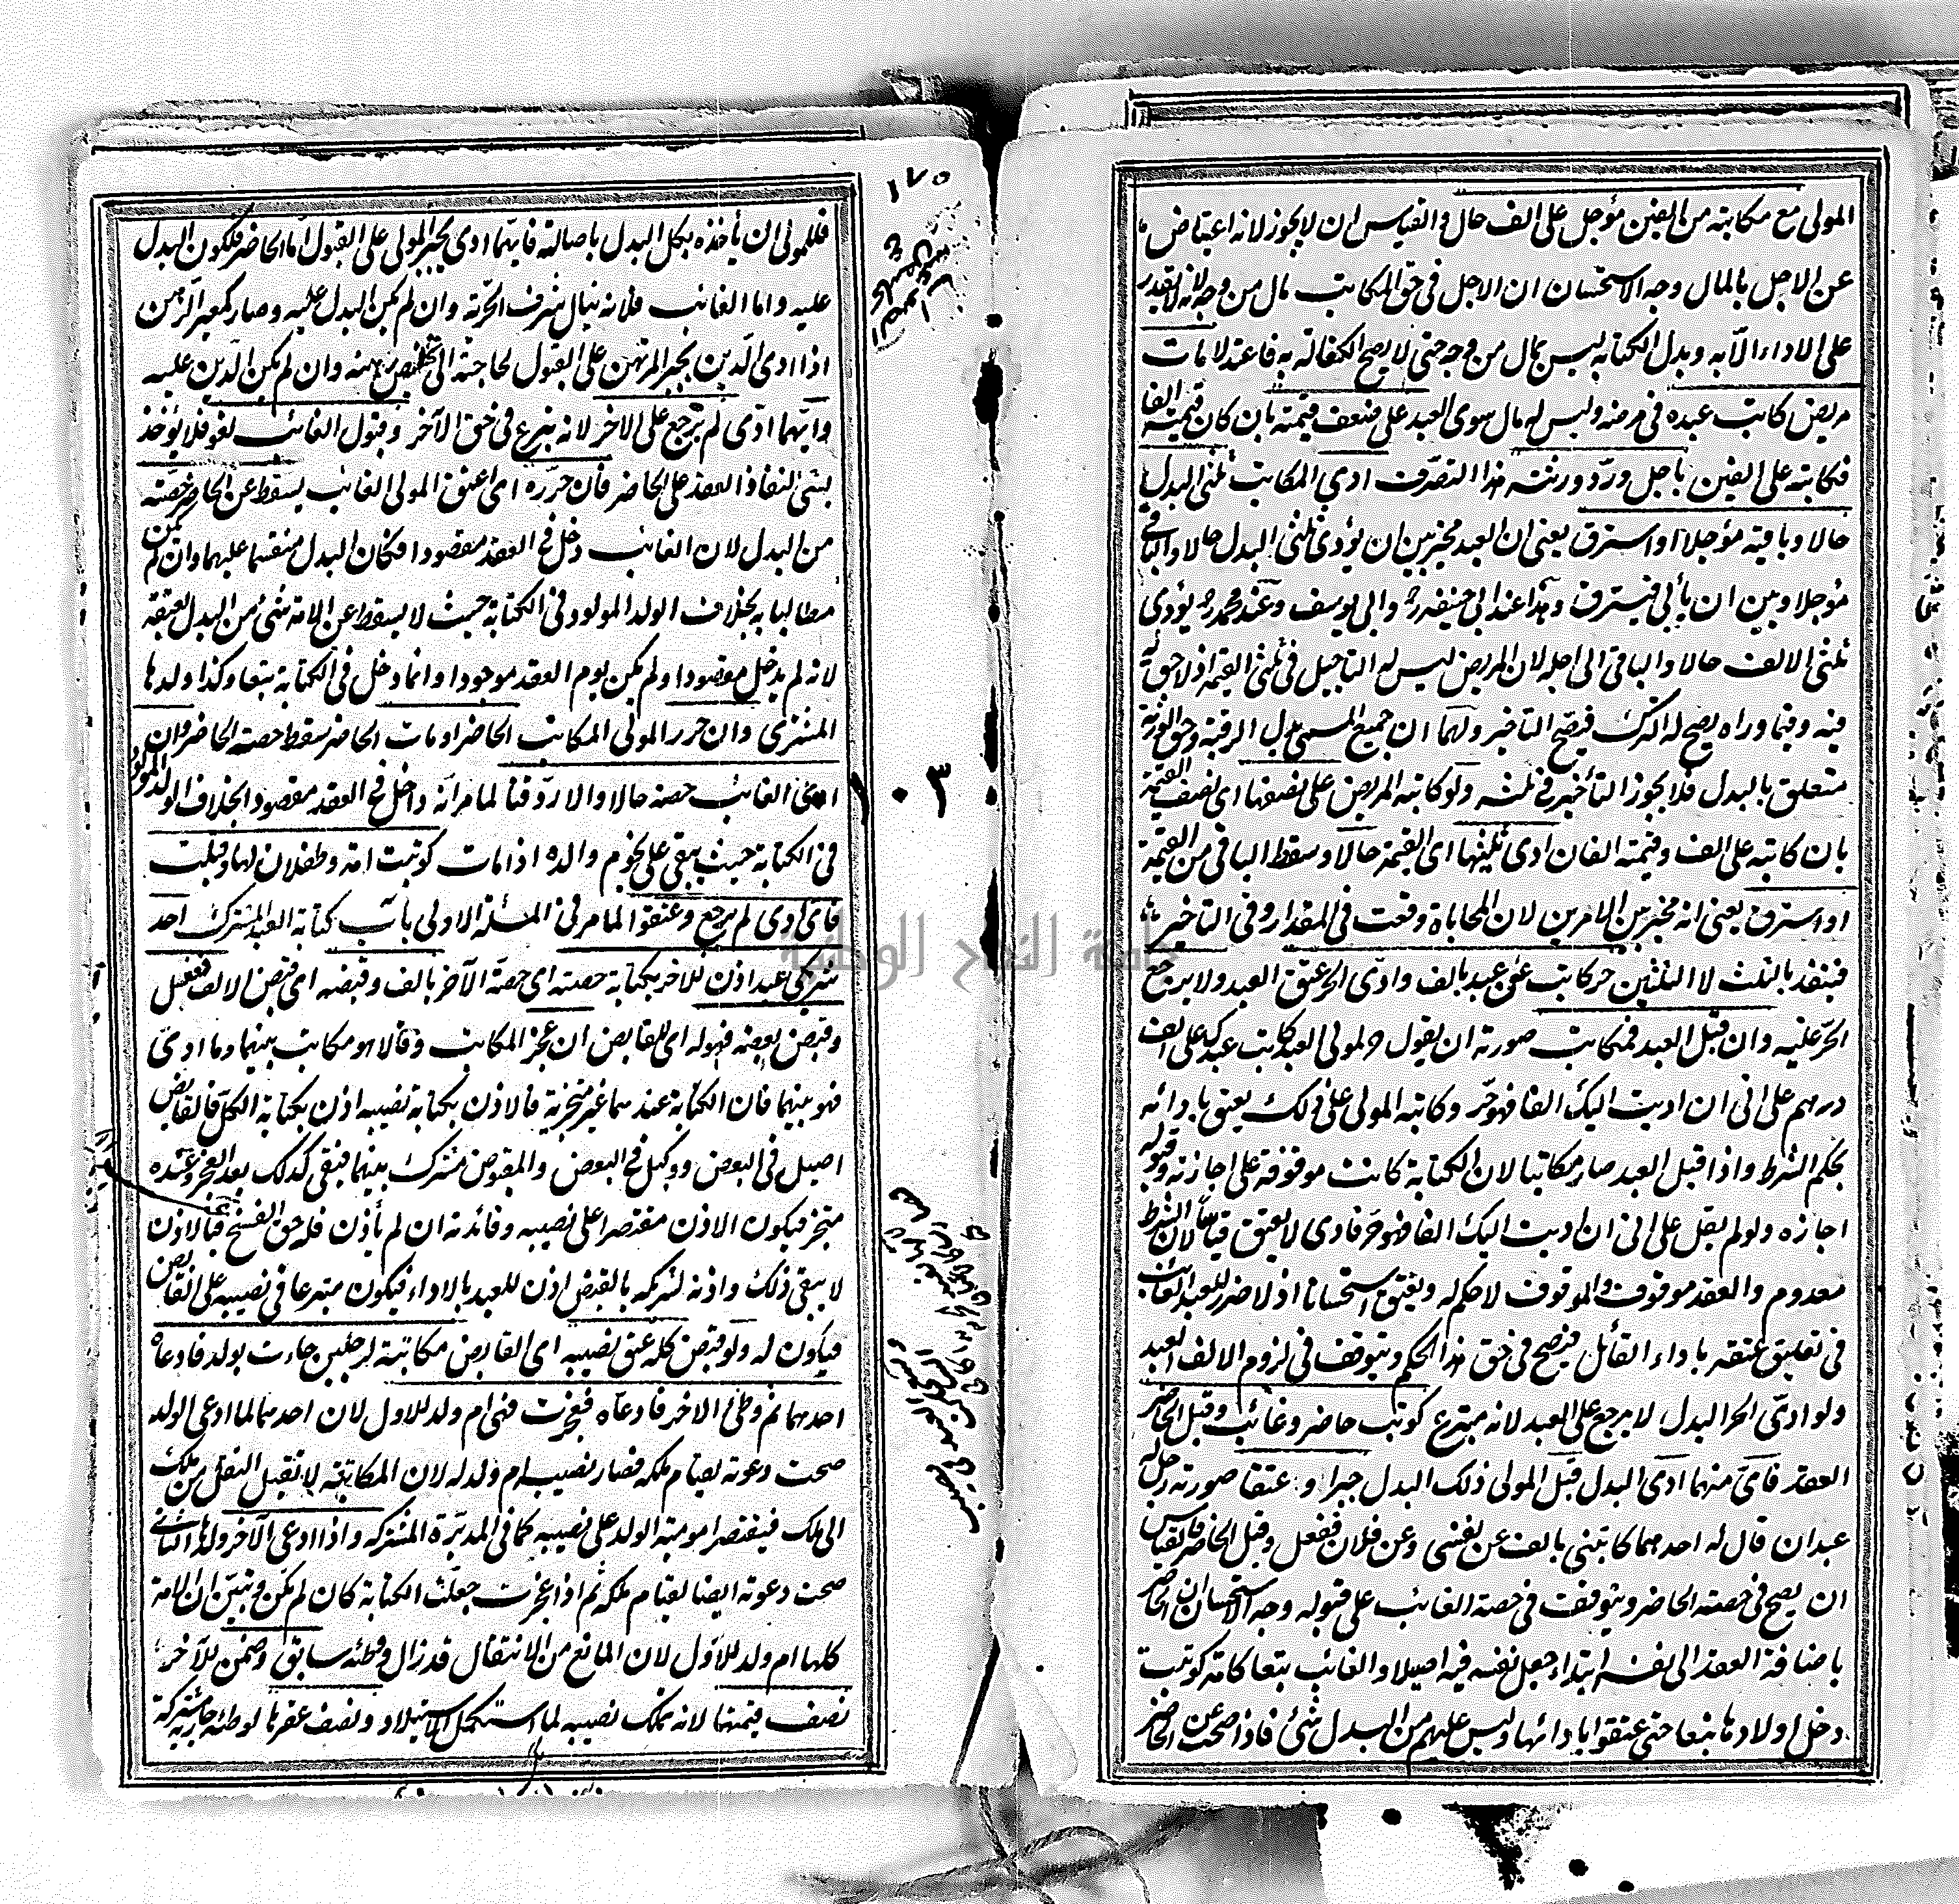 المولى مع مكاتبه من الفين مؤجل على الف حال والقياس ان لا يجوز لانه اعتياض
عن الاجل بالمال وجه الاستحسان ان الاجل في حق المكاتب مال من وجه لانه لا يقدر
على الاداء الا به وبدل الكتابه ليس بمال من وجه حتى لا يصح الكفالة به فاعتدلا مات
مريض كاتب عبده في مرضه وليس له مال سوى العبد على ضعف قيمته بان كان قيمته الفا
فكاتبه على الفين باجل ورد ورثته هذا التصرف ادى المكاتب ثلثي البدل
حالا وباقيه مؤجلا او استرق يعنى ان العبد مخير بين ان يؤدى ثلثي البدل حالا والباقي
مؤجلا وبين ان يأبى فيسترق وهذا عند ابى حنيفه رح وابى يوسف وعند محمد رح يؤدى
ثلثي الالف حالا والباقي الى اجله لان المريض ليس له التاجيل في ثلثي القيمة اذ لا حق له
فيه وفيما وراه يصح له الترك فيصح التاخير ولهما ان جميع المسمى بدل الرقبة وحق الورثة
متعلق بالبدل فلا يجوز التأخير في ثلثه ولو كاتبه المريض على نصفها اى نصف القيمة
بان كاتبه على الف وقيمته الفان ادى ثلثيها اى القيمة حالا وسقط الباقي من القيمة
او استرق يعنى انه مخير بين الامرين لان المحاباة وقعت في المقدار وفى التاخير
فينفذ بالثلث لا الثلثين حر كاتب عن عبد بالف وادى الحر عتق العبد ولا يرجع
الحر عليه وان قبل العبد فمكاتب صورته ان يقول حر لمولى العبد كاتب عبدك على الف
درهم على انى ان اديت اليك الفا فهو حر وكاتبه المولى على ذلك يعتق بادائه
بحكم الشرط واذا قبل العبد صار مكاتبا لان الكتابة كانت موقوفة على اجازته وقبوله
اجازه ولو لم يقل على انى ان اديت اليك الفا فهو حر فادى لا يعتق قياسا لان الشرط
معدوم والعقد موقوف والموقوف لا حكم له ويعتق استحسانا اذ لا ضرر للعبد الغائب
في تعليق عتقه باداء القائل فيصح في حق هذا الحكم ويتوقف في لزوم الالف العبد
ولو ادى الحر البدل لا يرجع على العبد لانه متبرع كوتب حاضر وغائب وقبل الحاضر
العقد فاى منهما ادى البدل قبل المولى ذلك البدل جبرا وعتقا صورته رجل له
عبدان قال له احدهما كاتبنى بالف عن نفسى وعن فلان ففعل وقبل الحاضر فالقياس
ان يصح في حصته الحاضر ويتوقف في حصة الغائب على قبوله وجه الاستحسان ان الحاضر
باضافة العقد الى نفسه ابتداء جعل نفسه فيه اصيلا والغائب تبعا كامة كوتبت
دخل اولادها تبعا حتى عتقوا بادائها وليس عليهم من البدل شئ فاذا صح عن الحاضر
١٧٥
فللمولى ان يأخذه بكل البدل باصالته فايهما ادى يجبر المولى على القبول اما الحاضر فلكون البدل
عليه واما الغائب فلانه ينال شرف الحرية وان لم يكن البدل عليه وصار كمعير الرهن
اذا ادى الدين يجبر المرتهن على القبول لحاجته الى تخليص رهنه وان لم يكن الدين عليه
وايهما ادى لم يرجع على الاخر لانه متبرع في حق الآخر وقبول الغائب لغو فلا يؤخذ
بشئ لنفاذ العقد على الحاضر فان حرره اى اعتق المولى الغائب يسقط عن الحاضر حصته
من البدل لان الغائب دخل في العقد مقصودا فكان البدل منقسما عليهما وان لم يكن
مطالبا به بخلاف الولد المولود في الكتابة حيث لا يسقط عن الامة شئ من البدل بعتقه
لانه لم يدخل مقصودا ولم يكن يوم العقد موجودا وانما دخل في الكتابة تبعا وكذا ولدها
المشترى وان حرر المولى المكاتب الحاضر او مات الحاضر سقط حصة الحاضر وان
ادى الغائب حصته حالا والا رد قنا لما مر انه داخل في العقد مقصودا بخلاف الولد المولود
١٠٣
في الكتابة حيث يبقى على نجوم والده اذا مات كوتبت امة وطفلان لها وقبلت
فاى ادى لم يرجع وعتقوا لما مر في المسئلة الاولى باب كتابة العبد المشترك احد
شريكى عبد اذن للآخر بكتابة حصته اى حصة الآخر بالف وقبضه اى قبض الالف ففعل
وقبض بعضه فهو له اى للقابض ان عجز المكاتب وقالا هو مكاتب بينهما وما ادى
فهو بينهما فان الكتابة عندهما غير متجزية فالاذن بكتابة نصيبه اذن بكتابة الكل فالقابض
اصيل في البعض ووكيل في البعض والمقبوض مشترك بينهما فبقى كذلك بعد العجز وعنده
متجز فيكون الاذن مقتصرا على نصيبه وفائدته ان لم يأذن فله حق الفسخ فبالاذن
لا يبقى ذلك واذنه لشريكه بالقبض اذن للعبد بالاداء فيكون متبرعا في نصيبه على القابض
فيكون له ولو قبض كله عتق نصيبه اى القابض مكاتبة لرجلين جاءت بولد فادعاه
احدهما ثم وطئ الاخر فادعاه فعجزت فهى ام ولد للاول لان احدهما لما ادعى الولد
صحت دعوته لقيام ملكه فصار نصيبه ام ولد له لان المكاتبة لا تقبل النقل من ملك
الى ملك فيقتصر امومية الولد على نصيبه كما في المدبرة المشتركه واذا ادعى الآخر ولدها الثانى
صحت دعوته ايضا لقيام ملكه ثم اذا عجزت جعلت الكتابة كان لم يكن وتبين ان الامة
كلها ام ولد للاول لان المانع من الانتقال قد زال ووطئه سابق وضمن للآخر
نصف قيمتها لانه تملك نصيبه لما استكمل الاستيلاد ونصف عقرها لوطئه جارية مشتركة
جامعة النجاح الوطنية